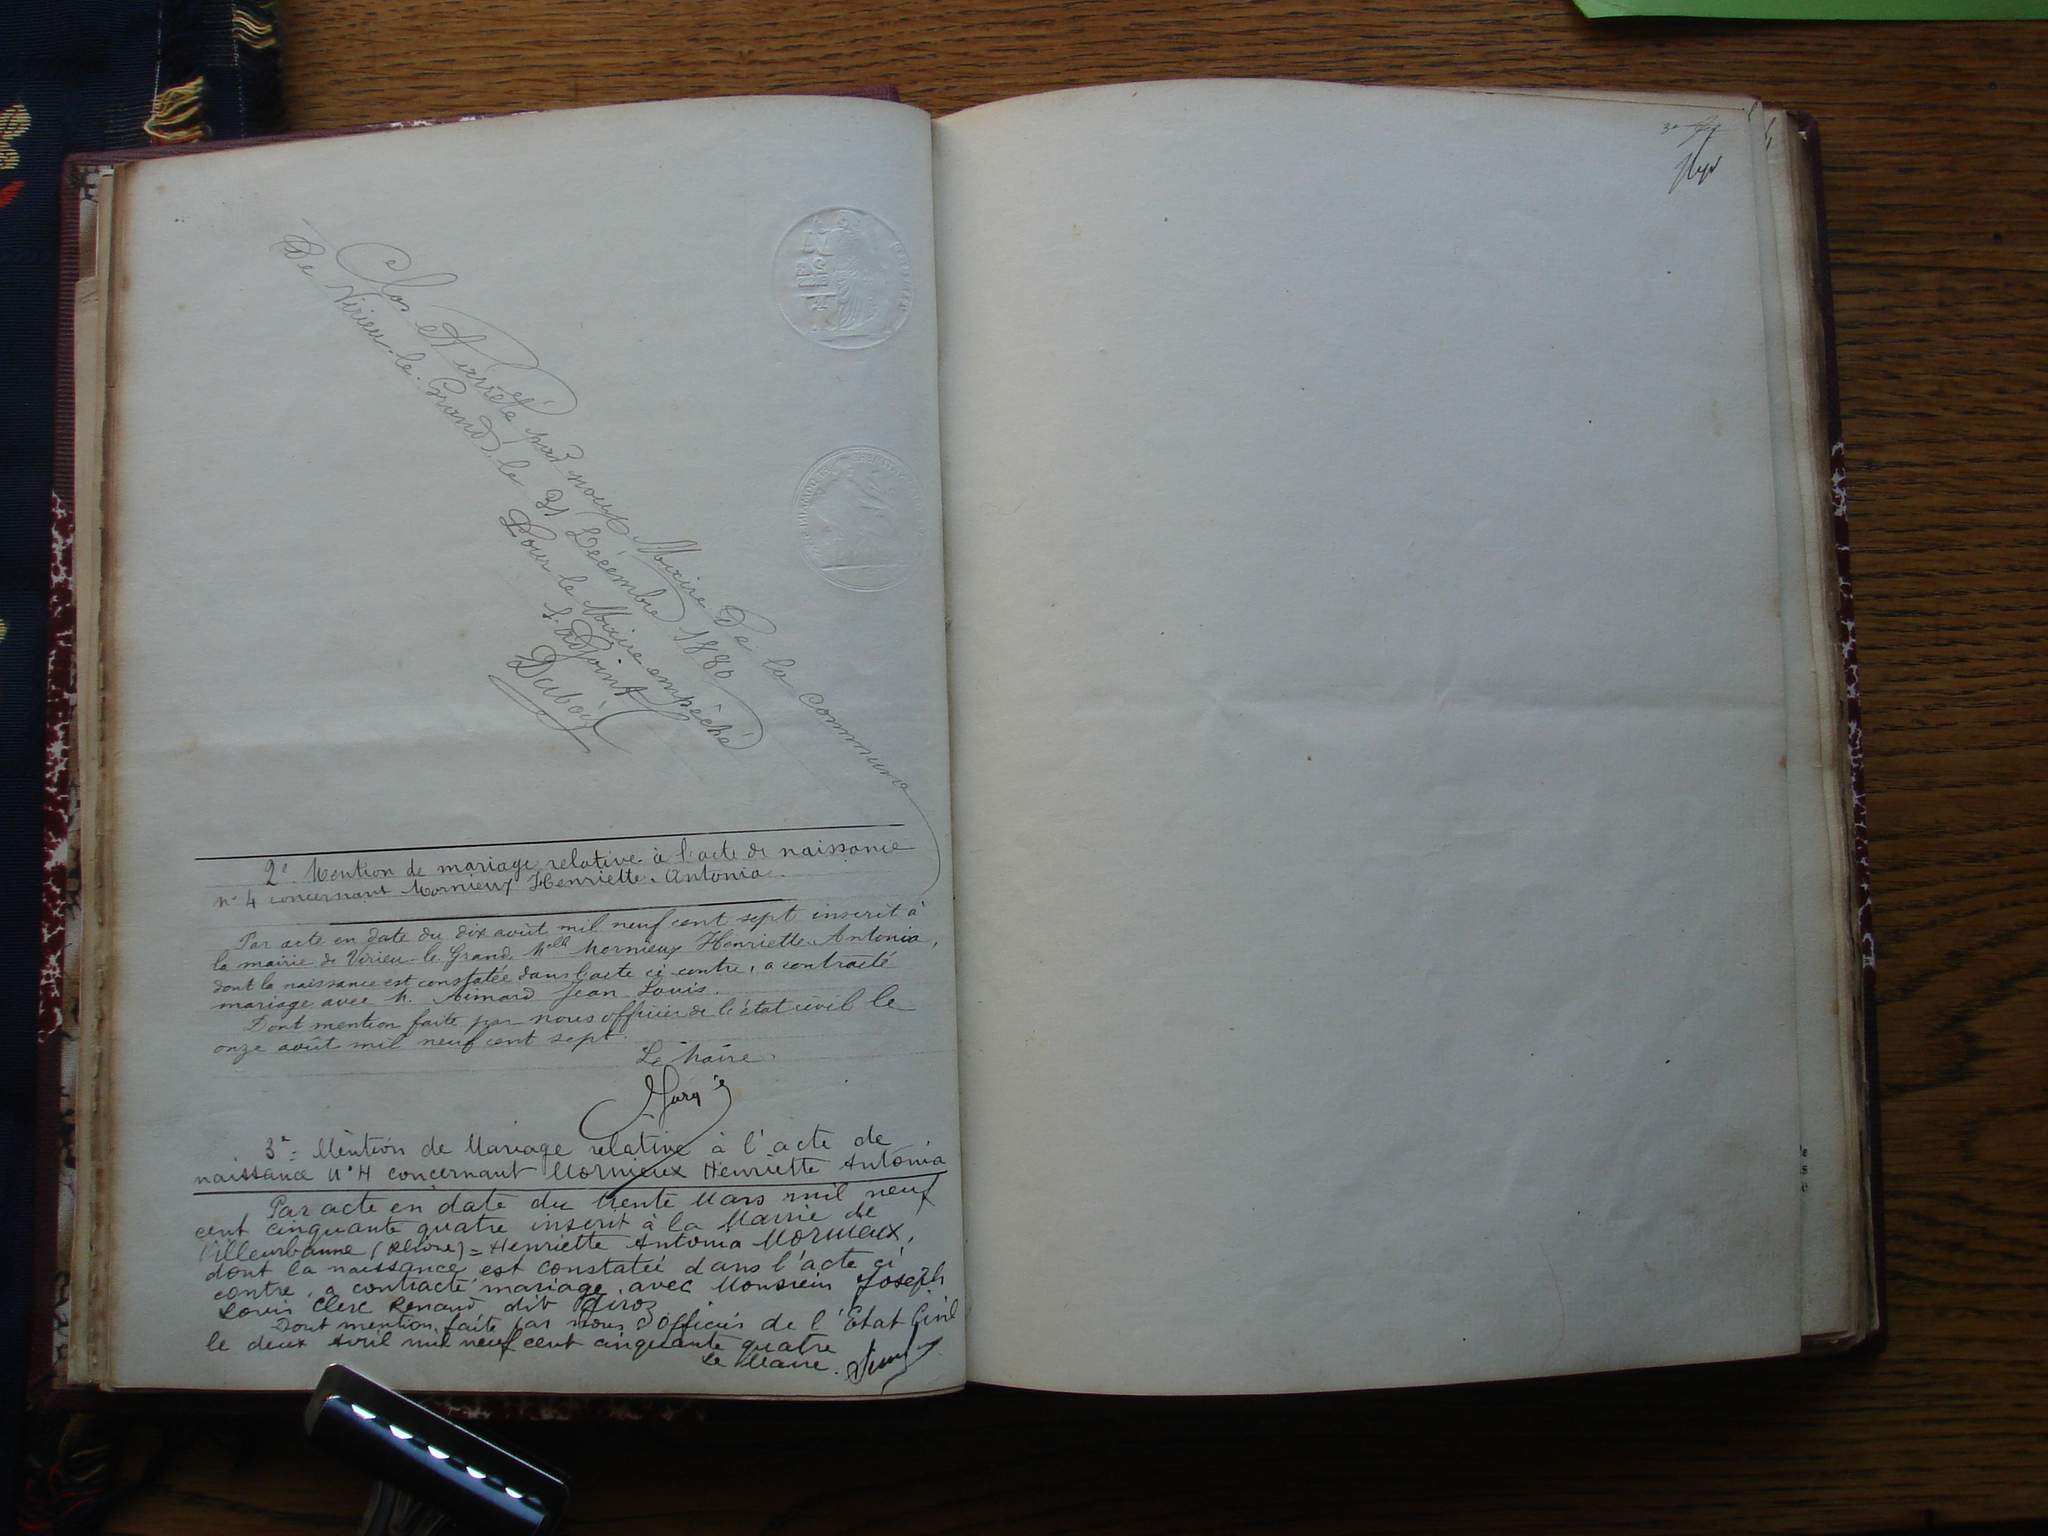 Clos et arrêté par nous Maire de la commune
De Virieu-le-Grand, le 31 Décembre 1886
Pour le Maire empêché
L'adjoint
Dubois
2e. Mention de mariage relative à l'acte de naissance
n° 4 concernant Mornieux Henriette-Antonia.
Par acte en date du dix août mil neuf cent sept inscrit à
la mairie de Virieu-le-Grand Melle Mornieux Henriette-Antonia,
dont la naissance est constatée dans l'acte ci contre, a contracté
mariage avec M. Aimard Jean Louis.
Dont mention faite par nous officier de l'état civil le
onze août mil neuf cent sept.
Le Maire.
3e = Mention de Mariage relative à l'acte de
naissance N° 4 concernant Mornieux Henriette Antonia
Par acte en date du trente Mars mil neuf
cent cinquante quatre inscrit à la Mairie de
Villeurbanne (Rhône) = Henriette Antonia Mornieux,
dont la naissance est constatée dans l'acte ci
contre, a contracté mariage avec Monsieur Joseph
Louis Clerc Renaud dit Giroz
Dont mention faite par nous Officier de l'Etat Civil
le deux Avril mil neuf cent cinquante quatre
Le Maire.